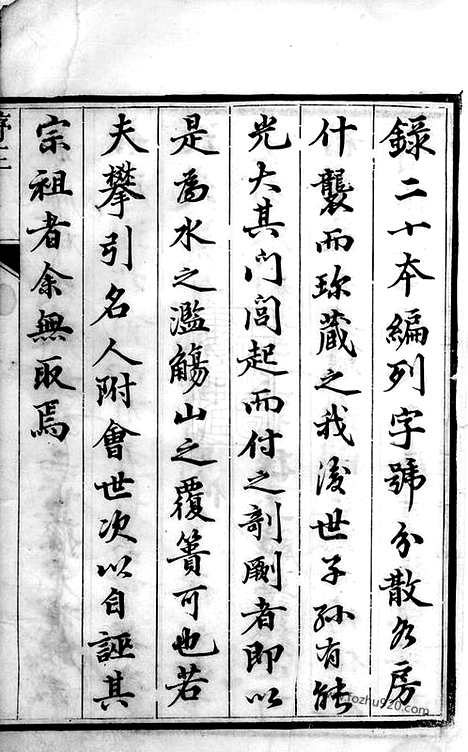 錄二十本編列字號分散各房
什襲而珍蔵之我後世子孫有能
光大其门閭起而付之剞劂者即以
是為水之濫觴山之覆簣可也若
夫攀引名人附會世次以自誣其
宗祖者余無取焉
序二
zhu920.com